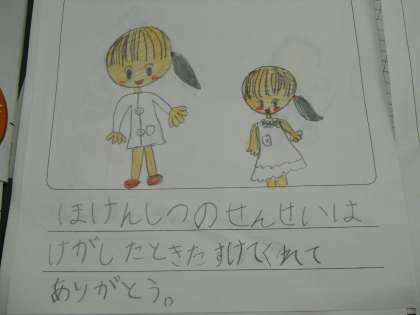 ほけんしつのせんせいは
けがしたときたすけてくれて
ありがとう。